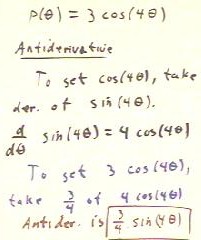 p(θ) = 3 cos(4θ)
Antiderivative
To get cos(4θ), take
der. of sin(4θ).
d/dθ sin(4θ) = 4 cos(4θ)
To get 3 cos(4θ),
take 3/4 of 4 cos(4θ)
Antider. is 3/4 sin(4θ)